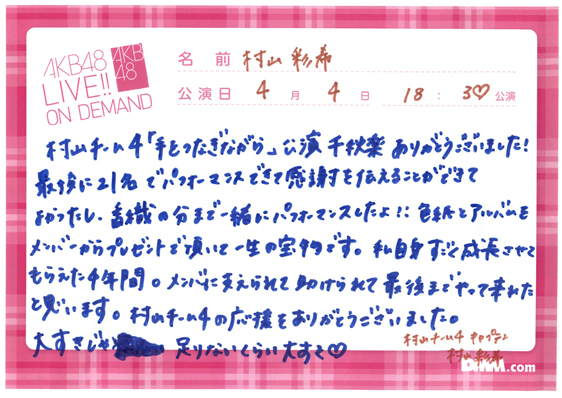 AKB48
LIVE!!
ON DEMAND
AKB
48
名前 村山彩希
公演日 4月4日 18:30公演
村山チーム4「手をつなぎながら」公演 千秋楽 ありがとうございました!
最後に21名でパフォーマンスできて感謝を伝えることができて
よかったし、香織の分まで一緒にパフォーマンスしたよ!! 色紙とアルバムを
メンバーからプレゼントで頂いて一生の宝物です。私自身すごく成長させて
もらえた4年間。メンバに支えられて助けられて最後までやって来れた
と思います。村山チーム4の応援をありがとうございました。
大すきじゃ 足りないくらい大すき♡
村山チーム4 キャプテン
村山彩希
DMM.com